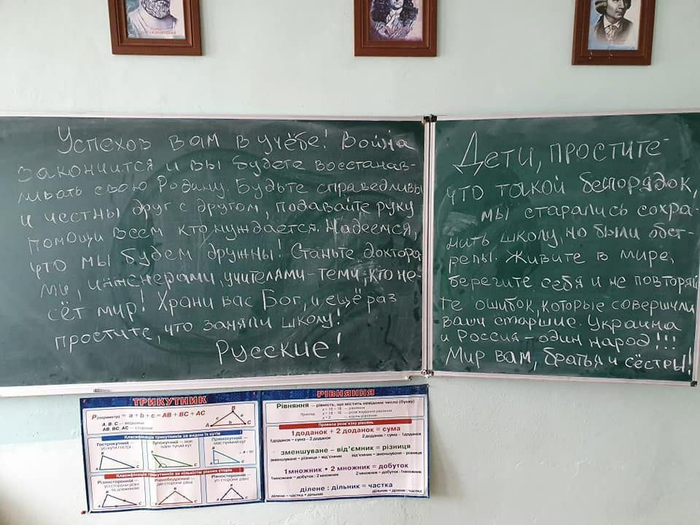 Успехов вам в учёбе! Война
закончится и вы будете восстанав-
ливать свою Родину. Будьте справедливы
и честны друг с другом, подавайте руку
помощи всем кто нуждается. Надеемся,
что мы будем дружны! Станьте доктора
ми, инженерами, учителями-теми кто не-
сёт мир! Храни вас Бог, и ещё раз
простите, что заняли школу!
Русские!
Дети, простите
что такой беспорядок,
мы старались сохра-
нить школу, но были обст-
релы. Живите в мире,
берегите себя и не повторяй
те ошибок, которые совершили
ваши старшие. Украина
и Россия-один народ!!!
Мир вам, братья и сёстры!
ТРИКУТНИК
Pтрикутника = a + b + c = AB + BC + AC
A, B, C — вершини
AB, BC, AC — сторони
Класифікація трикутників за видом їх кутів
РІВНЯННЯ
Рівняння — рівність, що містить невідоме число (букву)
1доданок + 2 доданок = сума
1доданок = сума - 2доданок
2доданок = сума - 1доданок
зменшуване – від'ємник = різниця
1множник • 2 множник = добуток
ділене : дільник = частка